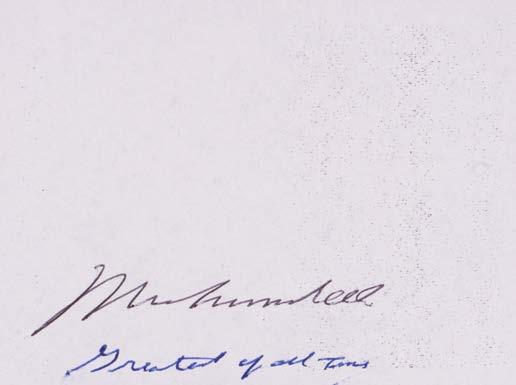 Muhammad Ali
Greatest of all time